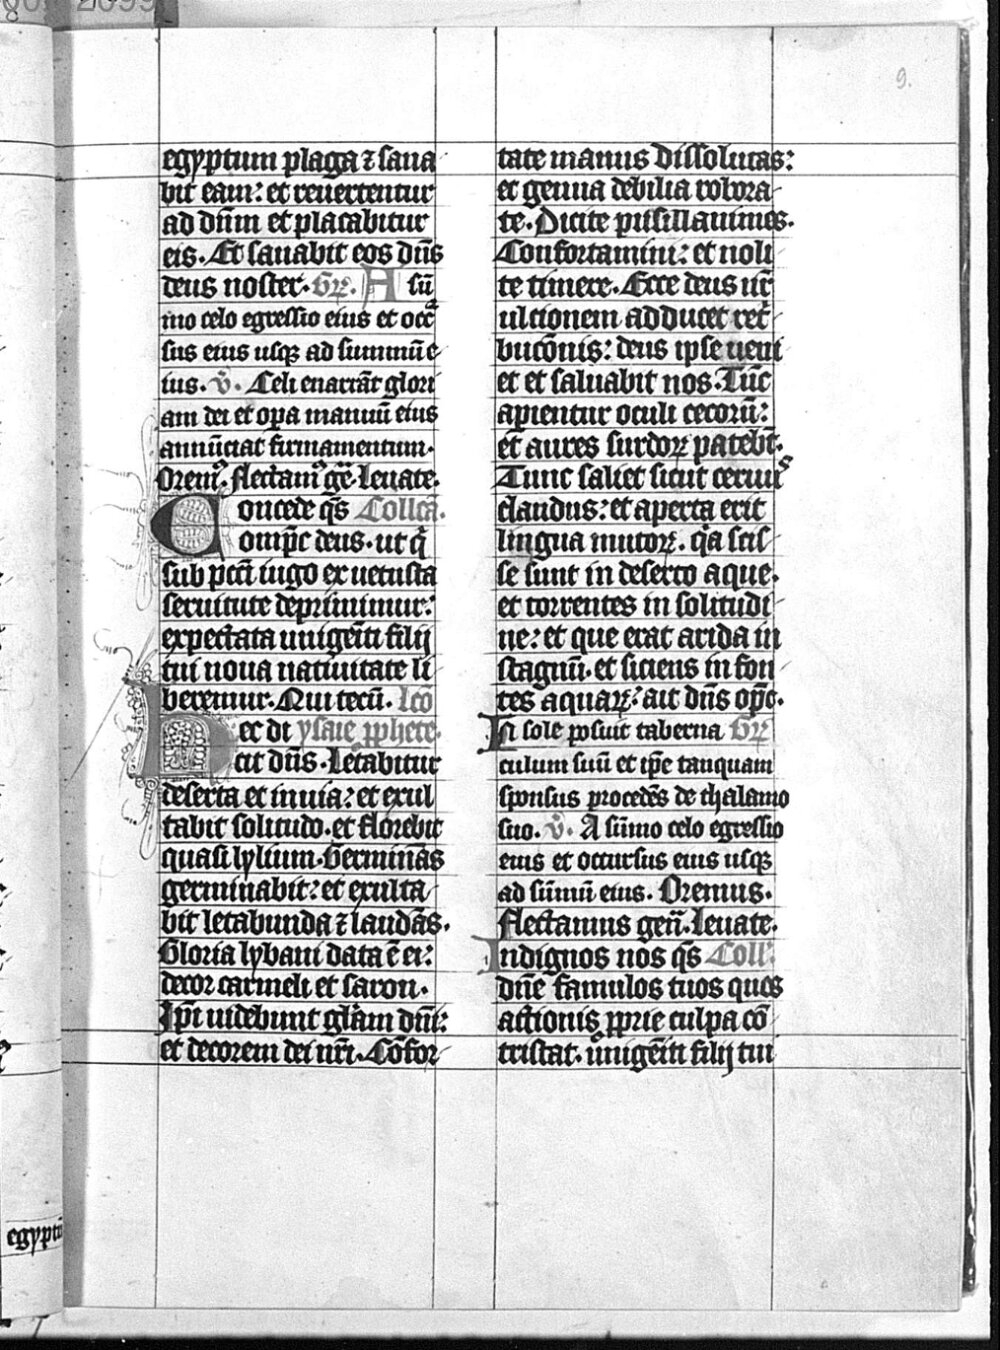 9.
egyptum plaga ⁊ sana
bit eam: et reuertentur
ad dn̄m et placabitur
eis. Et sanabit eos dn̄s
deus noster. Gr̄. A sū
mo celo egressio eius et occᵃ
sus eius usqꝫ ad summū e
ius. v̄. Celi enarrāt glori
am dei et oꝑa manuū eius
annūciat firmamentum.
Orem᷒. flectam᷒ gē. leuate.
Concede qs̄ Collcā.
omīpc̄ deus. ut q̄
sub pcc̄i iugo ex uetusta
seruitute deprimimur:
expectata unigēiti filij
tui noua natiuitate li
beremur. Qui tecū. lcō
Hec dt ysaie ꝓphete.
cit dn̄s. Letabitur
deserta et inuia: et exul
tabit solitudo. et florebit
quasi lylium. Germinās
germinabit: et exulta
bit letabunda ⁊ laudās.
Gloria lybani data ē ei:
decor carmeli et saron.
Ip̄i uidebunt gl̄am dn̄i:
et decorem dei nr̄i. Cōfor
tate manus dissolutas:
et genua debilia robora
te. Dicite pusillanimes.
Confortamini: et noli
te timere. Ecce deus ur̄
ulcionem adducet ret̄
bucōnis: deus ipse ueni
et et saluabit nos. Tūc
apientur oculi cecorū:
et aures surdoꝝ patebt̄.
Tunc saliet sicut ceruu᷒
claudus: et aperta erit
lingua mutoꝝ. qᵃ scis
se sunt in deserto aque.
et torrentes in solitudi
ne: et que erat arida in
stagnū. et siciens in fon
tes aquaꝝ: ait dn̄s opc̄.
In sole posuit taberna Gr̄
culum suū et ip̄e tanquam
sponsus procedēs de thalamo
suo. v̄. A sūmo celo egressio
eius et occursus eius usqꝫ
ad sūmū eius. Oremus.
Flectamus genū. leuate.
Indignos nos qs̄ Coll.
dn̄e famulos tuos quos
actionis ꝓprie culpa cō
tristat. unigēiti filij tui
egyptū